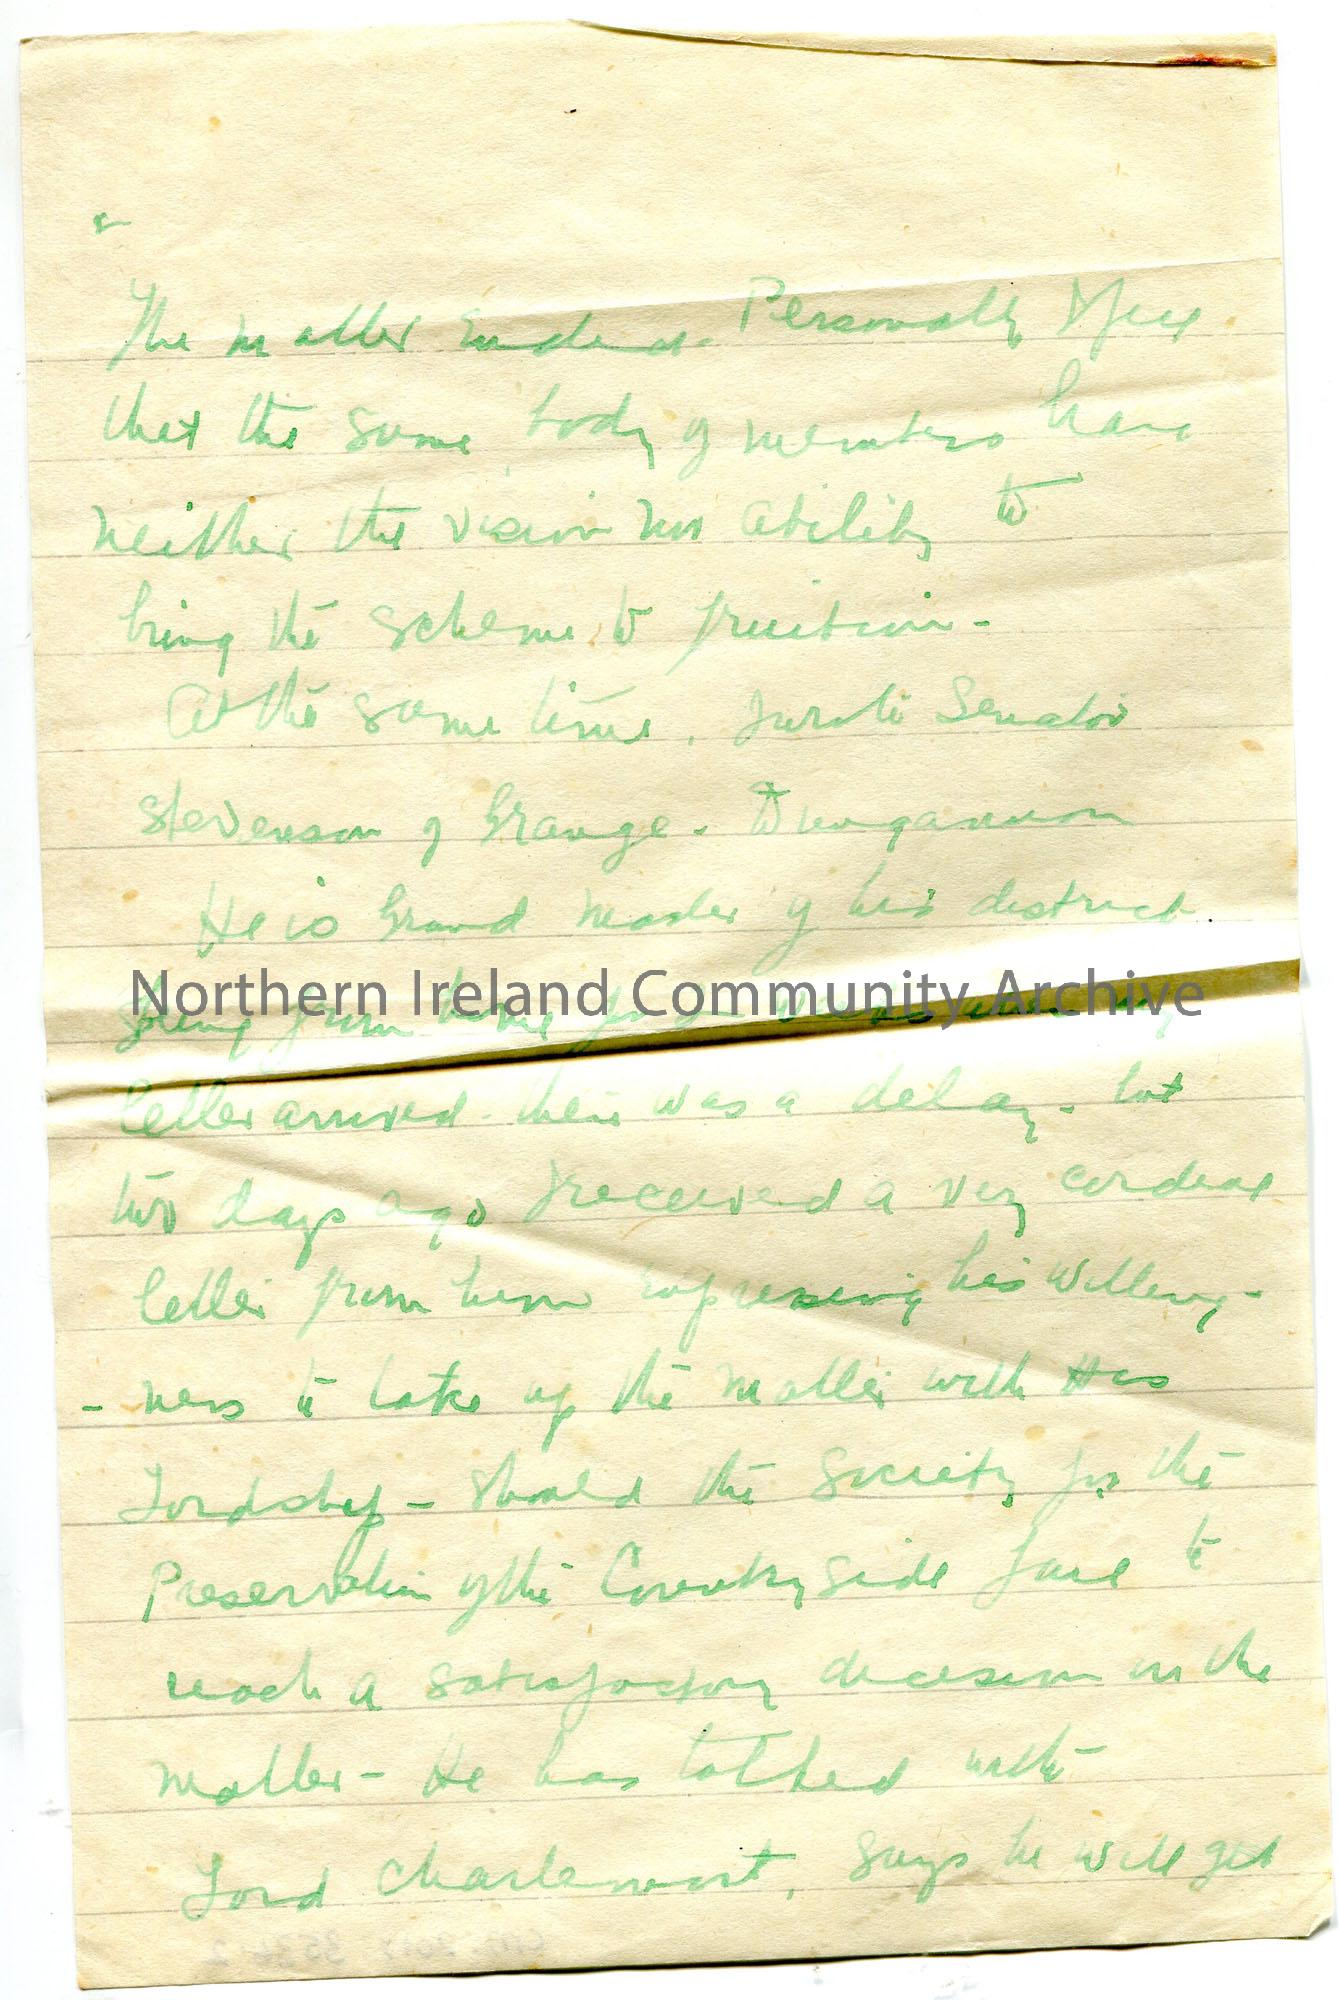 2
The matter ended. Personally I feel
that the same body of members have
neither the vision nor ability to
bring the scheme to fruition -
At the same time, I wrote Senator
Stevenson of Grange - Dungannon
He is Grand Master of his district
Northern Ireland Community Archive
Being from home for weeks when my
letter arrived - there was a delay - but
two days ago I received a very cordial
letter from him expressing his willing-
- ness to take up the matter with His
Lordship - should the Society for the
Preservation of the Countryside fail to
reach a satisfactory decision in the
matter - He has talked with
Lord Charlemont, says he will get